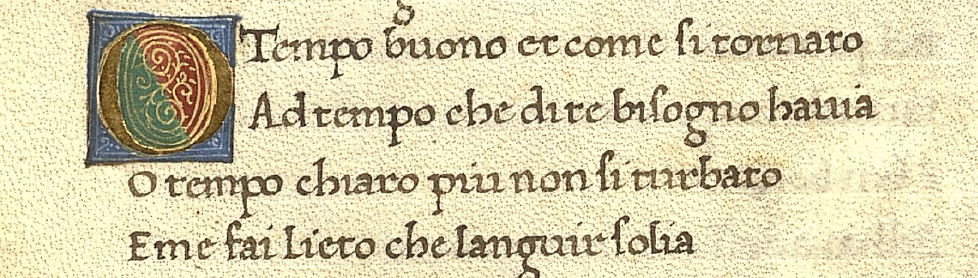 O Tempo buono et come si tornato
Ad tempo che di te bisogno havia
O tempo chiaro piu non si turbato
E me fai lieto che languir solia